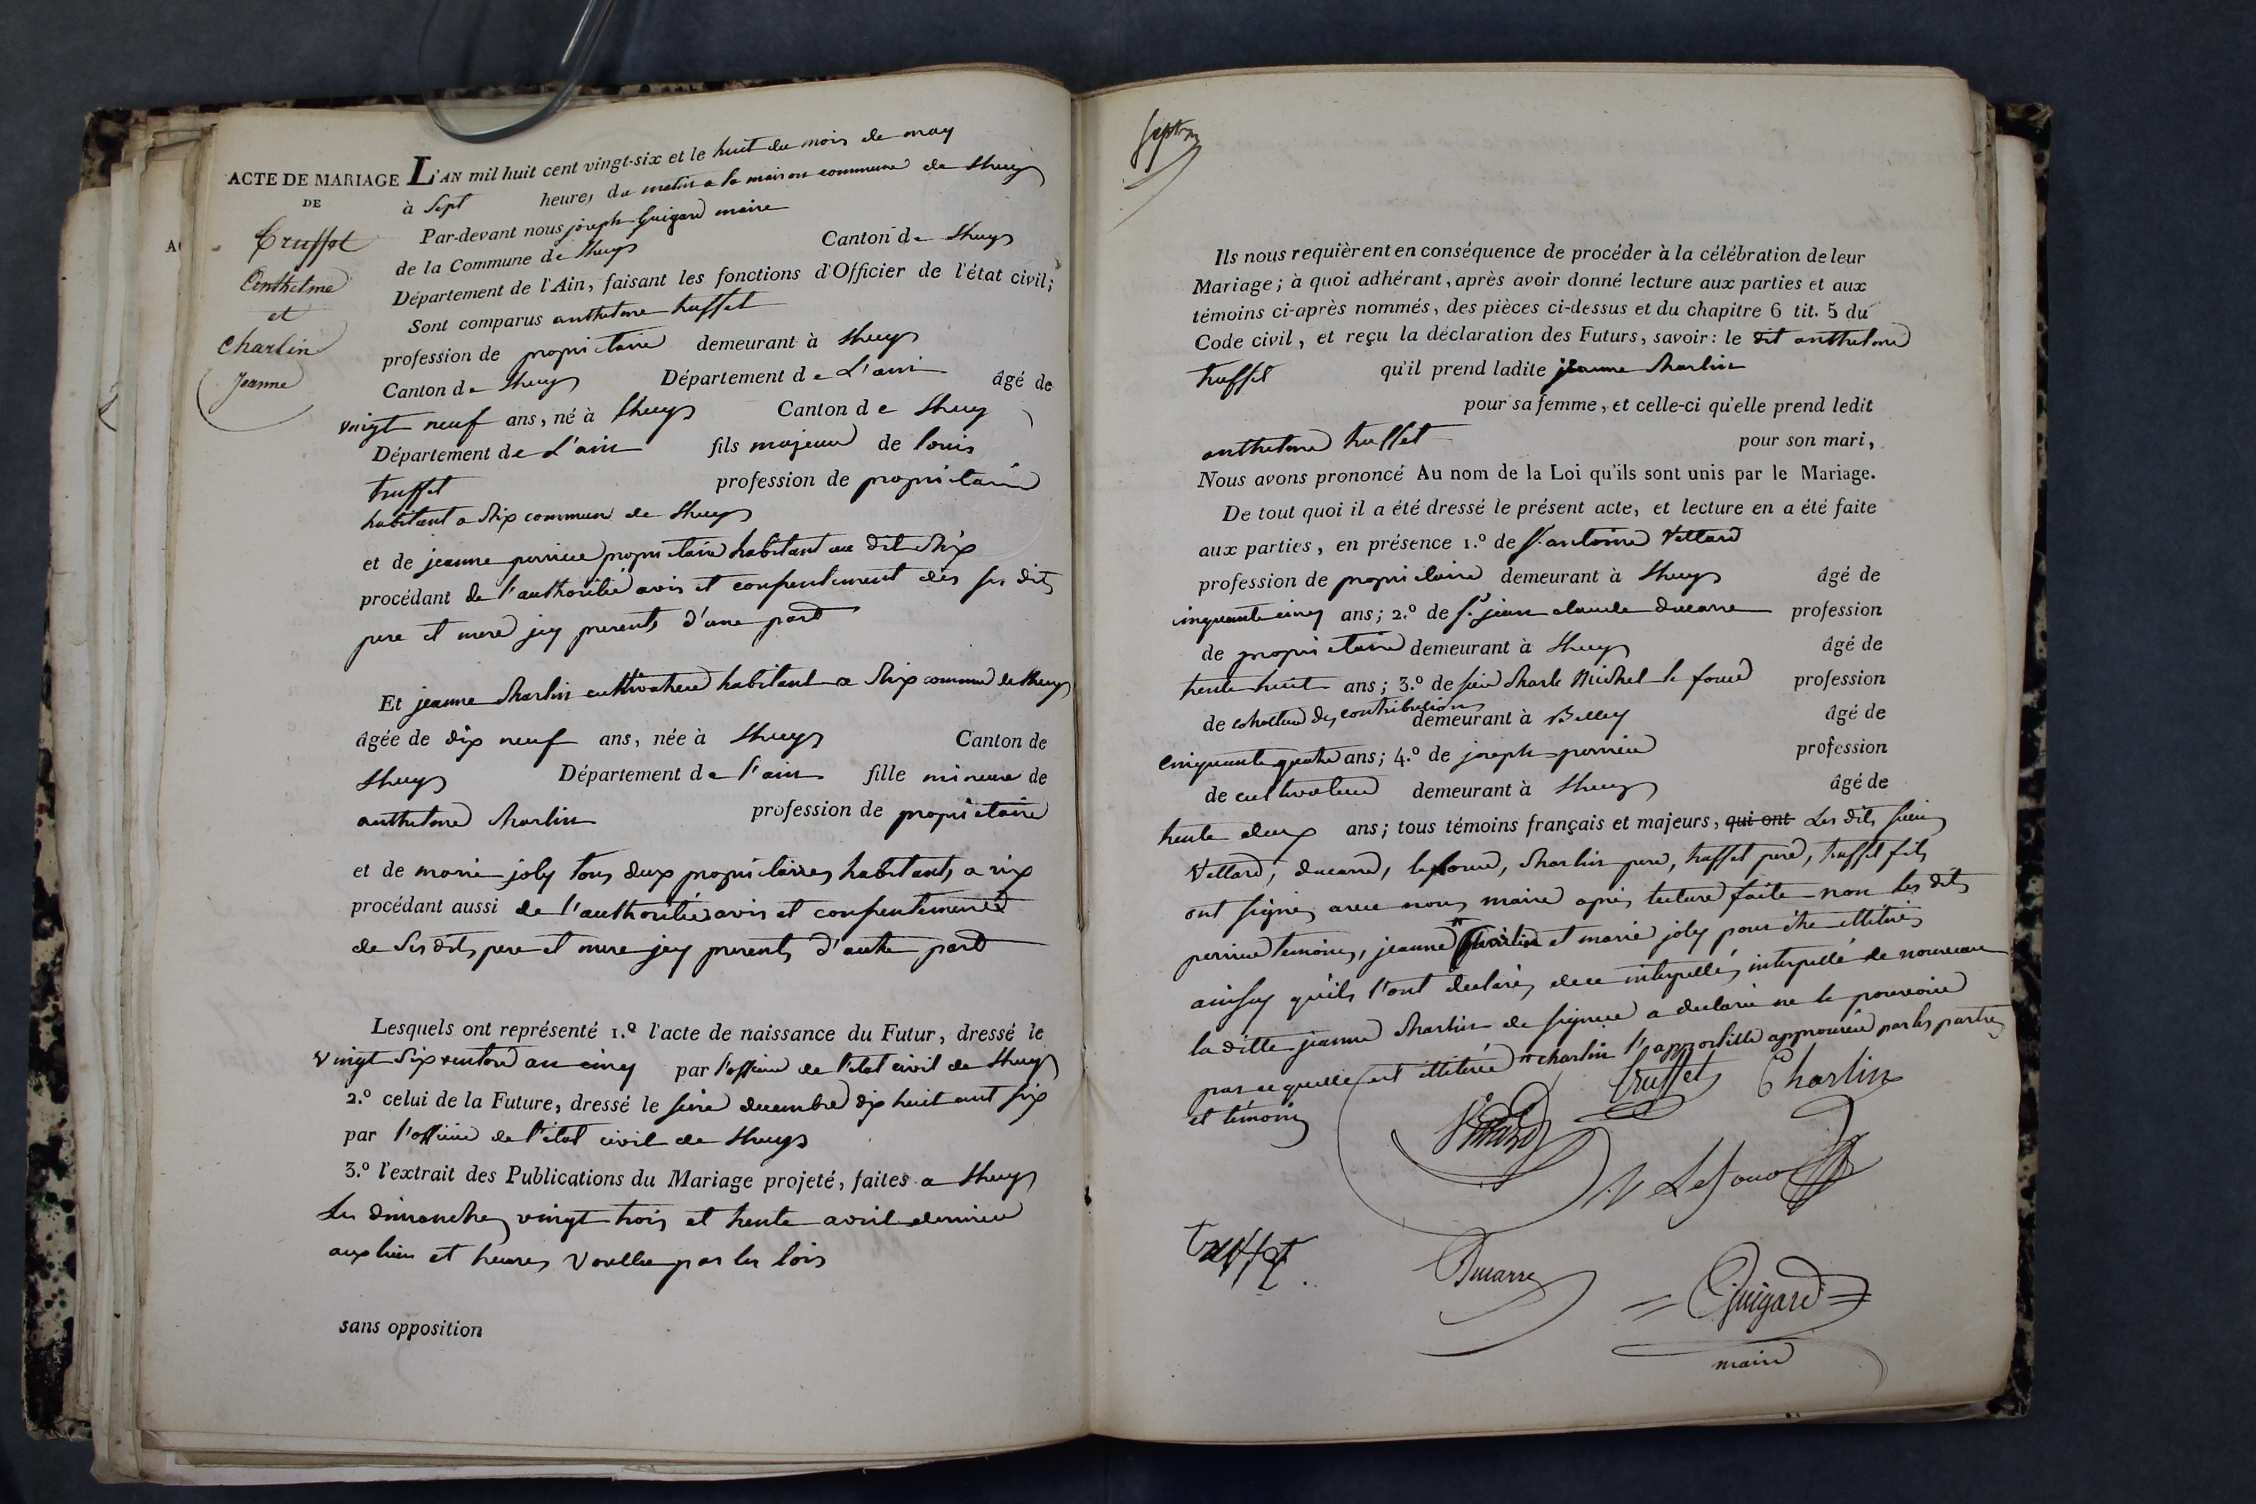 ACTE DE MARIAGE
DE
Truffot
Anthelme
et
Charlin
Jeanne
L'AN mil huit cent vingt-six et le huit du mois de may
à Sept heures du matin a la maison commune de Lhuys
Par-devant nous joseph Guigard maire
de la Commune de Lhuys Canton de Lhuys
Département de l'Ain, faisant les fonctions d'Officier de l'état civil;
Sont comparus anthelme truffet
profession de propriétaire demeurant à Lhuys
Canton de Lhuys Département de L'ain âgé de
vingt neuf ans, né à Lhuys Canton de Lhuys
Département de L'ain fils majeur de louis
truffet profession de propriétaire
habitant a Rix commune de Lhuys
et de jeanne perrier propriétaire habitant au dit Rix
procédant de l'authorité avis et consentement des ses dits
pere et mere jcy presents d'une part
Et jeanne Charlin cultivatrice habitant a Rix commune de Lhuys
âgée de dix neuf ans, née à Lhuys Canton de
Lhuys Département de l'ain fille mineure de
anthelme Charlin profession de propriétaire
et de marie joly tous deux propriétaires habitants a rix
procédant aussi de l'authorité avis et consentement
de Ses dits pere et mere jcy presents d'autre part
Lesquels ont représenté 1.º l'acte de naissance du Futur, dressé le
vingt Six ventose an cinq par l'officier de l'état civil de Lhuys
2.º celui de la Future, dressé le seize decembre dix huit cent six
par l'officier de l'état civil de Lhuys
3.º l'extrait des Publications du Mariage projeté, faites a Lhuys
Les dimanches vingt trois et trente avril dernier
aux lieu et heures voullue par les lois
sans opposition
Ils nous requièrent en conséquence de procéder à la célébration de leur
Mariage; à quoi adhérant, après avoir donné lecture aux parties et aux
témoins ci-après nommés, des pièces ci-dessus et du chapitre 6 tit. 5 du
Code civil, et reçu la déclaration des Futurs, savoir: le dit anthelme
truffet qu'il prend ladite jeanne Charlin
pour sa femme, et celle-ci qu'elle prend ledit
anthelme truffet pour son mari,
Nous avons prononcé Au nom de la Loi qu'ils sont unis par le Mariage.
De tout quoi il a été dressé le présent acte, et lecture en a été faite
aux parties, en présence 1.º de S.r antoine Vettard
profession de propriétaire demeurant à Lhuys âgé de
cinquante cinq ans; 2.º de S.r jean claude ducarre profession
de propriétaire demeurant à Lhuys âgé de
trente huit ans; 3.º de sieur Charle Michel le fond profession
de colecteur des contributions demeurant à Belley âgé de
cinquante quatre ans; 4.º de joseph perrier profession
de cultivateur demeurant à Lhuys âgé de
trente deux ans; tous témoins français et majeurs, qui ont Les dits sieurs
Vettard, ducarre, Charlin pere, truffet pere, truffet fils
ont signés avec nous maire après lecture faite non les dits
perrier temoins, jeanne et marie joly pour être illiterés
ainsy qu'ils l'ont declarés de ce interpellés, interpellé de nouveau
la ditte jeanne Charlin de signer a declaré ne le pouvoir
par ce quelle est illiterée charlin l'appostille approuvée par les parties
et témoins
truffet Charlin
Truffet
Ducarre
Guigard
maire